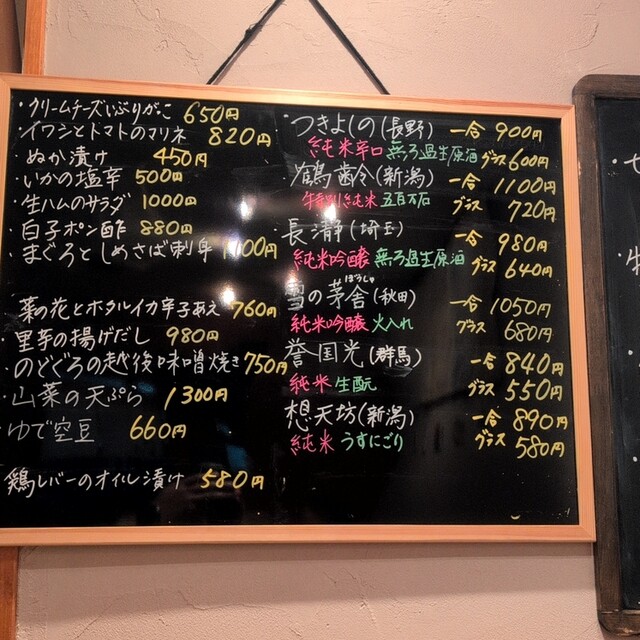 ・クリームチーズいぶりがっこ 650円
・イワシとトマトのマリネ 820円
・ぬか漬け 450円
・いかの塩辛 500円
・生ハムのサラダ 1000円
・白子ポン酢 880円
・まぐろとしめさば刺身 1100円
菜の花とホタルイカ辛子あえ 760円
・里芋の揚げだし 980円
・のどぐろの越後味噌焼き 750円
・山菜の天ぷら 1300円
・ゆで空豆 660円
・鶏レバーのオイル漬け 580円
・つきよしの(長野) 一合 900円
純米辛口 無ろ過生原酒 グラス 600円
・鶴齢(新潟) 一合 1100円
特別純米 五百万石 グラス 720円
・長瀞(埼玉) 一合 980円
純米吟醸 無ろ過生原酒 グラス 640円
ぼうしゃ
雪の茅舎(秋田) 一合 1050円
純米吟醸 火入れ グラス 680円
誉国光(群馬) 一合 840円
純米 生酛 グラス 550円
想天坊(新潟) 一合 890円
純米 うすにごり グラス 580円